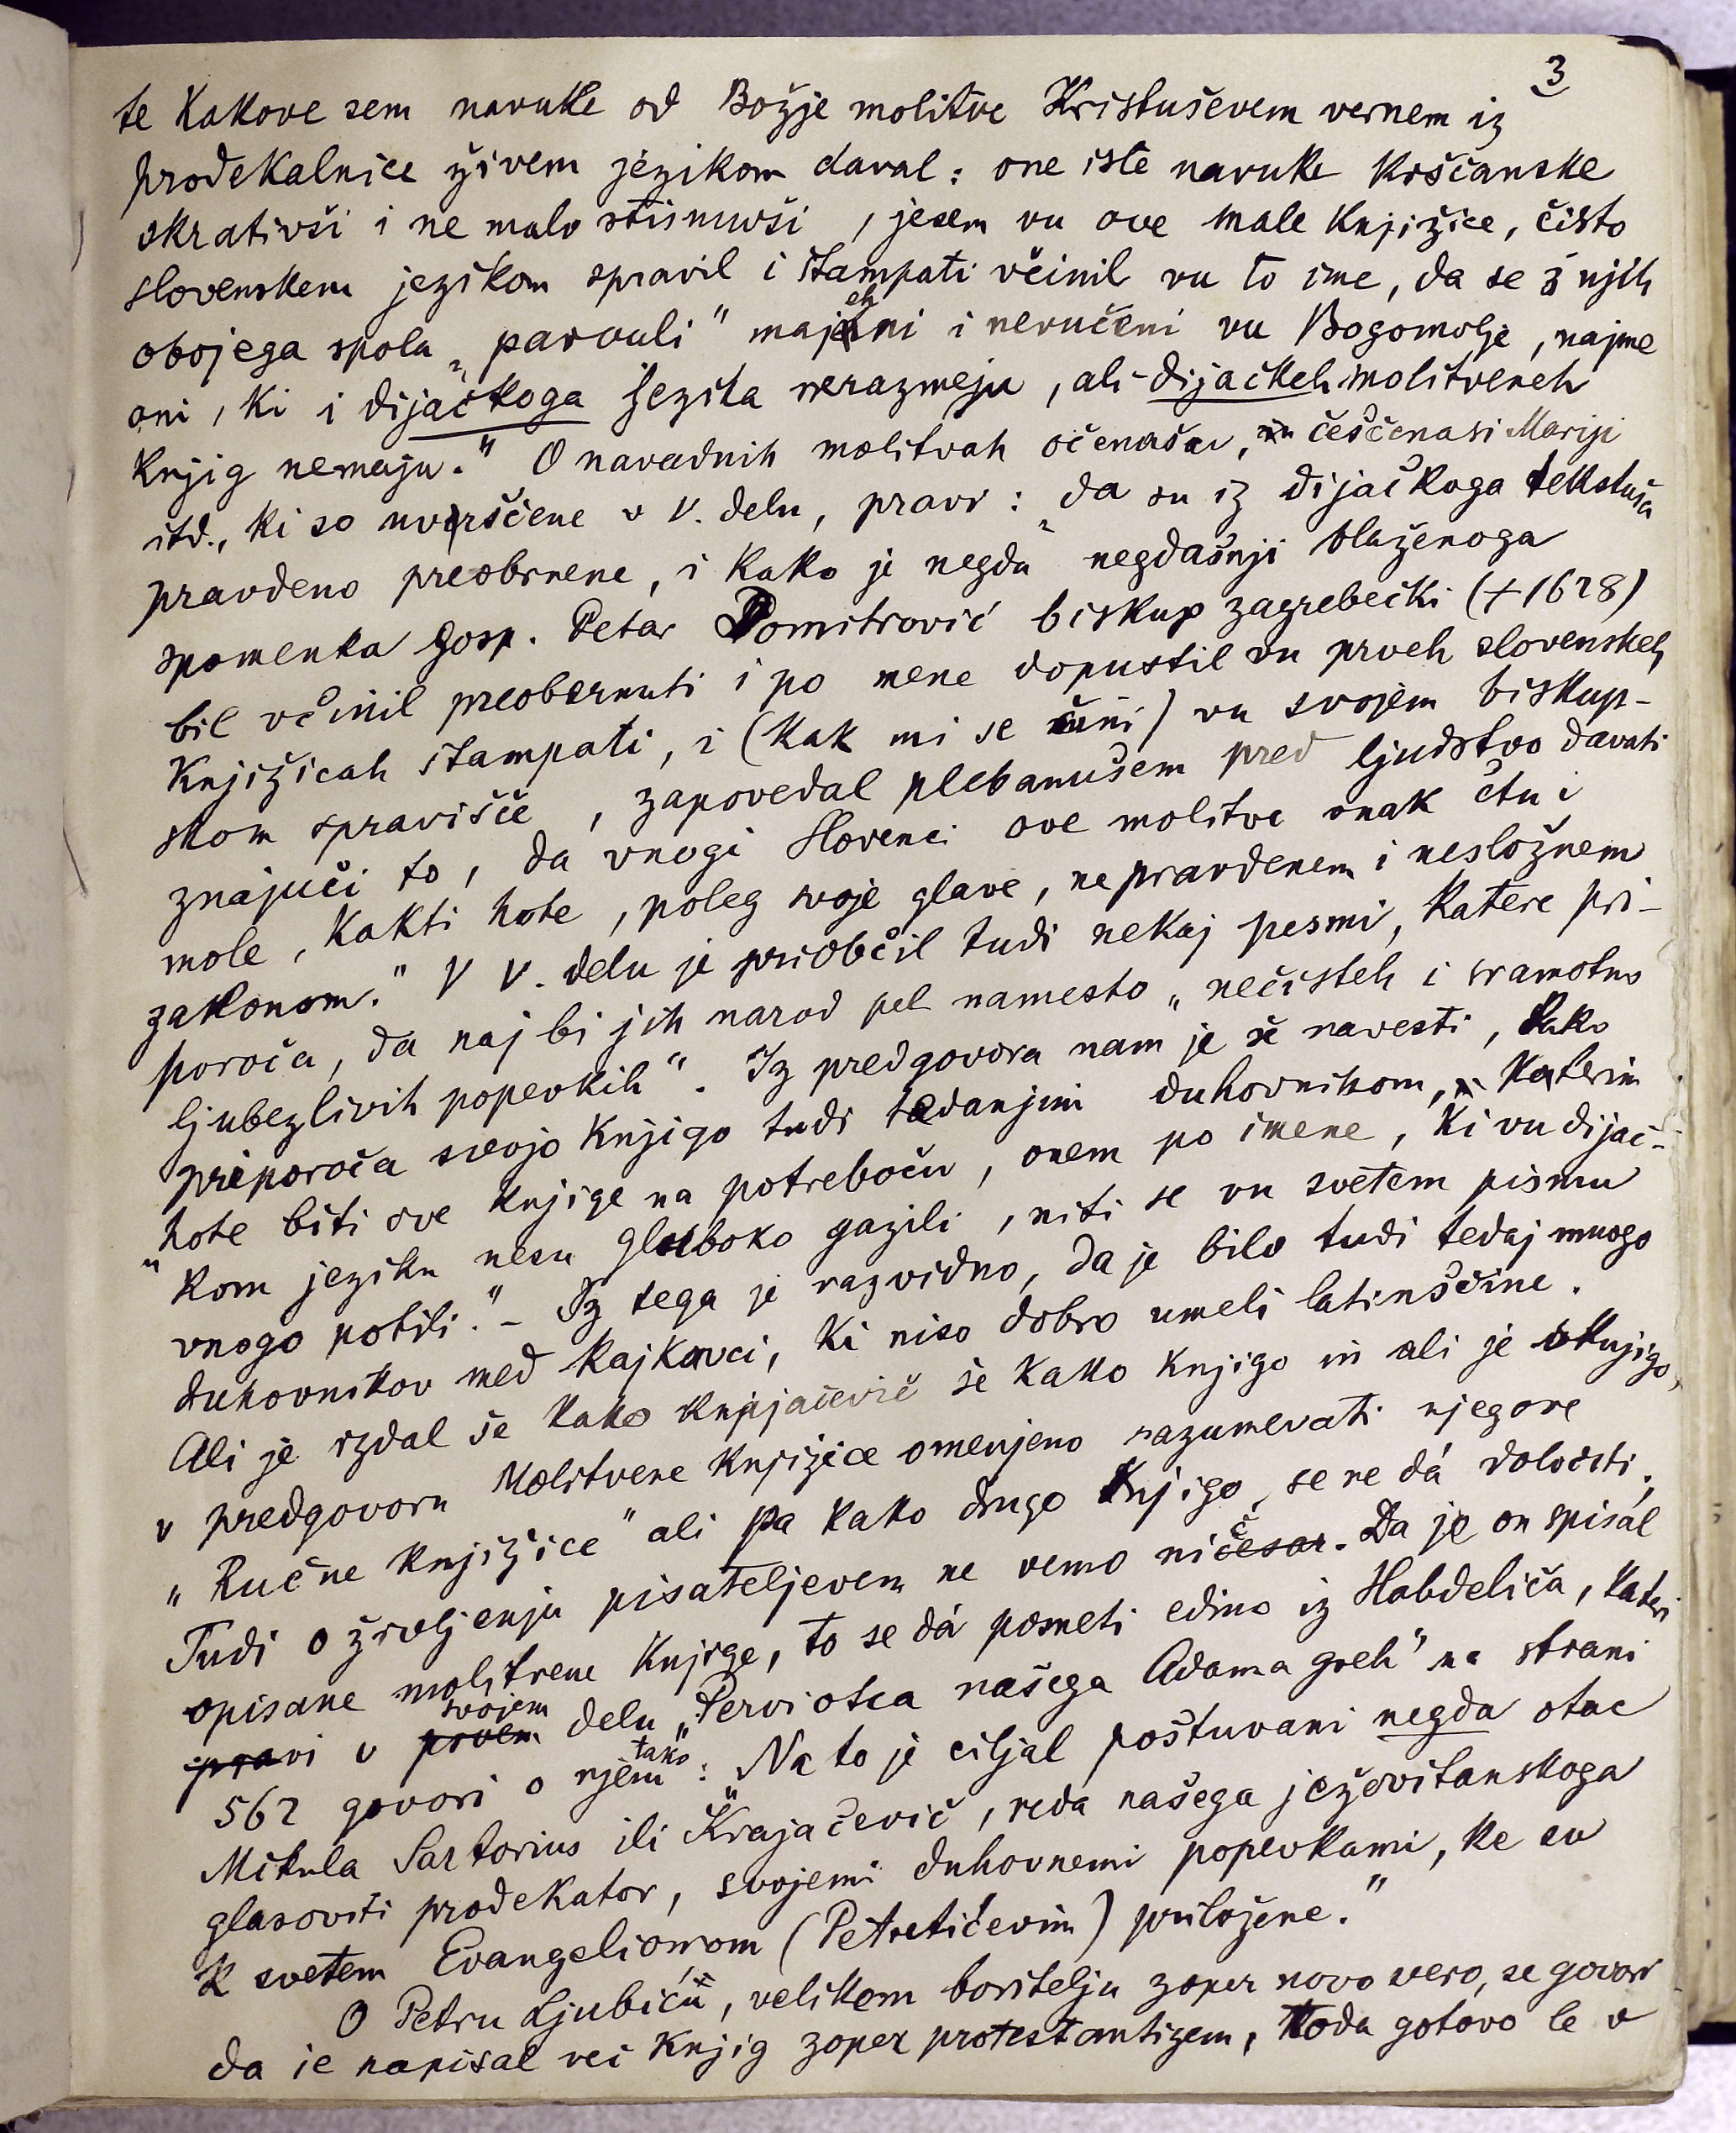 3
te kakove sem navuke od Božje molitve Kristuševem vernem iz
prodekalnice živem jezikom daval: one iste navuke krščanske
skrativši i ne malo stisnuvši, jesem vu ove male knjižice, čisto
slovenskem jezikom spravil i štampati včinil vu to ime, da se ž njih
obojega spola „parvuli" majehni i nevučeni vu Bogomolje, najme
oni, ki i dijačkoga jezika nerazmeju, ali dijačkeh molitveneh
knjig nemaju." O navadnih molitvah očenašu, češčenasi Mariji
itd., ki so uvrščene v V. delu, pravi: „da su iz dijačkoga tekstuša
pravdeno preobrnene, i kako je negda negdašnji blaženoga
spomenka gosp. Petar Domitrović biskup zagrebečki (+1628)
bil včinil preobernuti i po mene dopustil vu prveh slovenskeh
knjižicah štampati, i (kak mi se čini) vu svojem biskup-
skom spravišče, zapovedal plebanušem pred ljudstvo davati
znajuči to, da vnogi Slovenci ove molitve onak čtu i
mole, kakti hote, poleg svoje glave, nepravdenem i nesložnem
zakonom." V V. delu je priobčil tudi nekaj pesmi, katere pri-
poroča, da naj bi jih narod pel namesto „nečisteh i sramotno
ljubezlivih popevkih". Iz predgovora nam je še navesti, kako
priporoča svojo knjigo tudi tedanjim duhovnikom, katerim
„hote biti ove knjige na potreboću, onem po imene, ki vu dijač-
kom jeziku nesu gluboko gazili, niti se vu svetem pismu
vnogo potili." - Iz tega je razvidno, da je bilo tudi tedaj mnogo
duhovnikov med kajkavci, ki niso dobro umeli latinščine.
Ali je izdal še kako Krajačevič še kako knjigo in ali je knjigo,
v predgovoru Molitvene knjižice omenjeno razumevati njegove
„Ručne knjižice" ali pa kako drugo knjigo, se ne dá določiti.
Tudi o življenju pisateljevem ne vemo nič česar. Da je on spisal
opisane molitvene knjige, to se dá posneti edino iz Habdeliča, kateri
pravi v prvem svojem delu „Pervi otca našega Adama greh" na strani
562 govori o njem tako: „Na to je ciljal poštuvani negda otac
Mikula Sartorius ili Krajačevič, reda našega ježovitanskoga
glasoviti prodekator, svojemi duhovnemi popevkami, ke su
k svetem Evangeliomom (Petretičevim) priložene."
O Petru Ljubiću, velikem boritelju zoper novo vero, se govori
da je napisal več knjig zoper protestantizem, toda gotovo le v